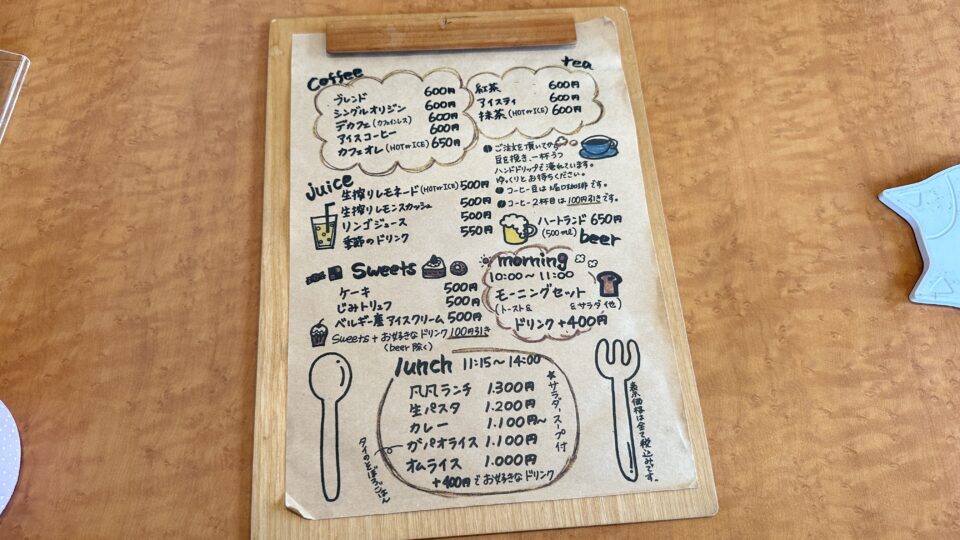 coffee
ブレンド 600円
シングルオリジン 600円
デカフェ(カフェインレス) 600円
アイスコーヒー 600円
カフェオレ(HOT or ICE) 650円
tea
紅茶 600円
アイスティ 600円
抹茶(HOT or ICE) 600円
ご注文を頂いてから
豆を挽き、一杯ずつ
ハンドドリップで淹れています。
ゆっくりとお待ちください。
コーヒー豆は堀口珈琲です。
コーヒー2杯目は100円引きです。
juice
生搾りレモネード(HOT or ICE) 500円
生搾りレモンスカッシュ 500円
リンゴジュース 500円
季節のドリンク 550円
ハートランド 650円
(500ml) beer
sweets
ケーキ 500円
じみトリュフ 500円
ベルギー産アイスクリーム 500円
sweets+お好きなドリンク100円引き
(beer除く)
morning
10:00〜11:00
モーニングセット
(トースト& &サラダ他)
ドリンク+400円
lunch 11:15〜14:00
凡凡ランチ 1.300円
生パスタ 1.200円
カレー 1.100円〜
ガパオライス 1.100円
オムライス 1.000円
+400円でお好きなドリンク
★サラダ、スープ付
タイのそぼろごはん
表示価格は全て税込みです。